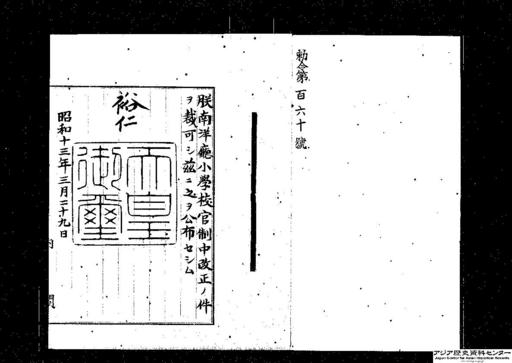 勅令第百六十號
朕南洋廳小學校官制中改正ノ件
ヲ裁可シ茲ニ之ヲ公布セシム
裕仁
天皇御璽
昭和十三年三月二十九日
内閣
アジア歴史資料センター
Japan Center for Asian Historical Records